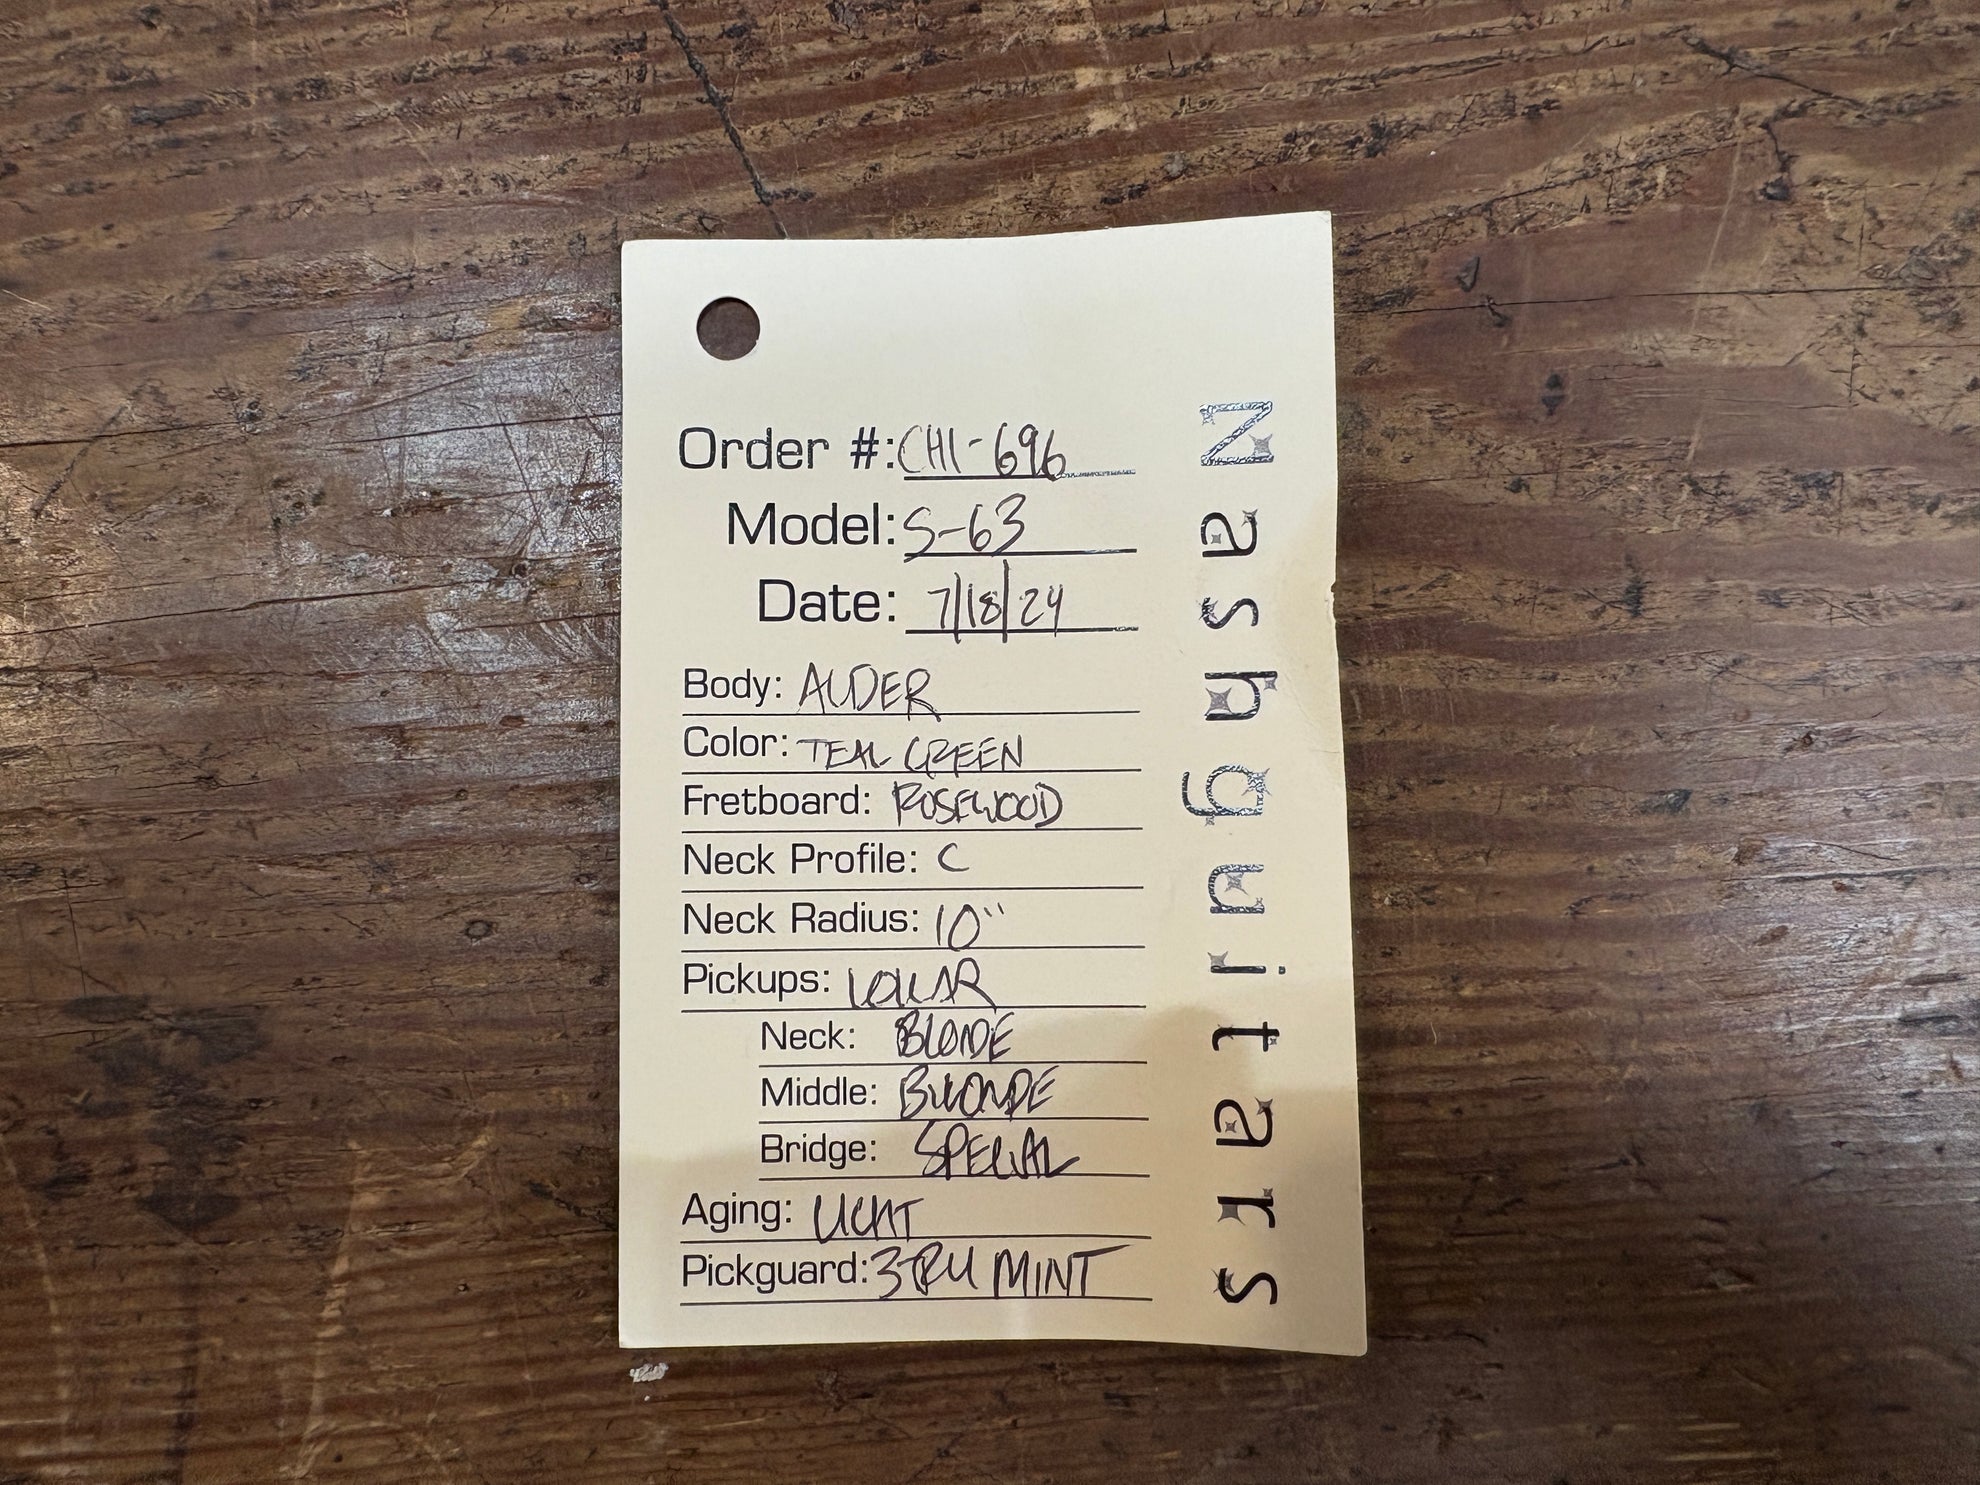 Order #: CHI-696
Model: S-63
Date: 7/18/24
Body: ALDER
Color: TEAL GREEN
Fretboard: ROSEWOOD
Neck Profile: C
Neck Radius: 10"
Pickups: LOLLAR
Neck: BLONDE
Middle: BLONDE
Bridge: SPECIAL
Aging: LIGHT
Pickguard: 3 PLY MINT
Nash guitars